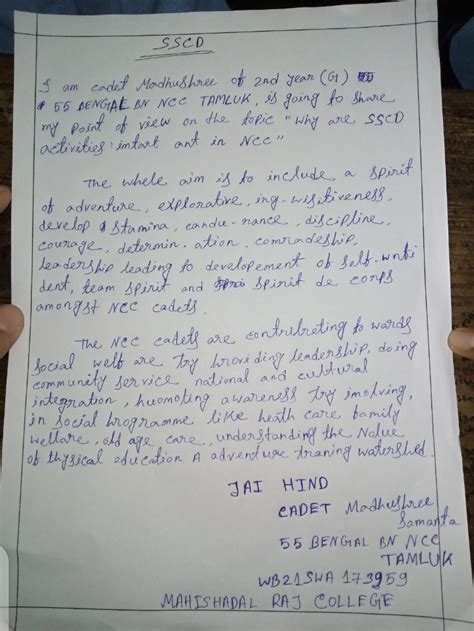 SSCD
I am cadet Madhushree of 2nd year (G)
55 BENGAL BN NCC TAMLUK, is going to share
my point of view on the topic "Why are SSCD
activities intart ant in NCC"
The whole aim is to include a spirit
of adventure, explorative, ing-wisitiveness,
develop Stamina, eandu-rance, discipline,
courage, determin, ation, comradeship,
leadership leading to developement of self-wnfi
dent, team spirit and spirit de corps
amongst NCC cadets.
The NCC cadets are contribreting to wards
Social welf are try broviding leadership, doing
community service, national and cultural
integration, huomoting awareness try imolving,
in social brogramme like heath care family
welfare, old age care, understanding the Nalue
of thysical education A adventure traning watershed.
JAI HIND
CADET Madhushree
Samanta
55 BENGAL BN NCC
TAMLUK
WB21SWA 173959
MAHISHADAL RAJ COLLEGE